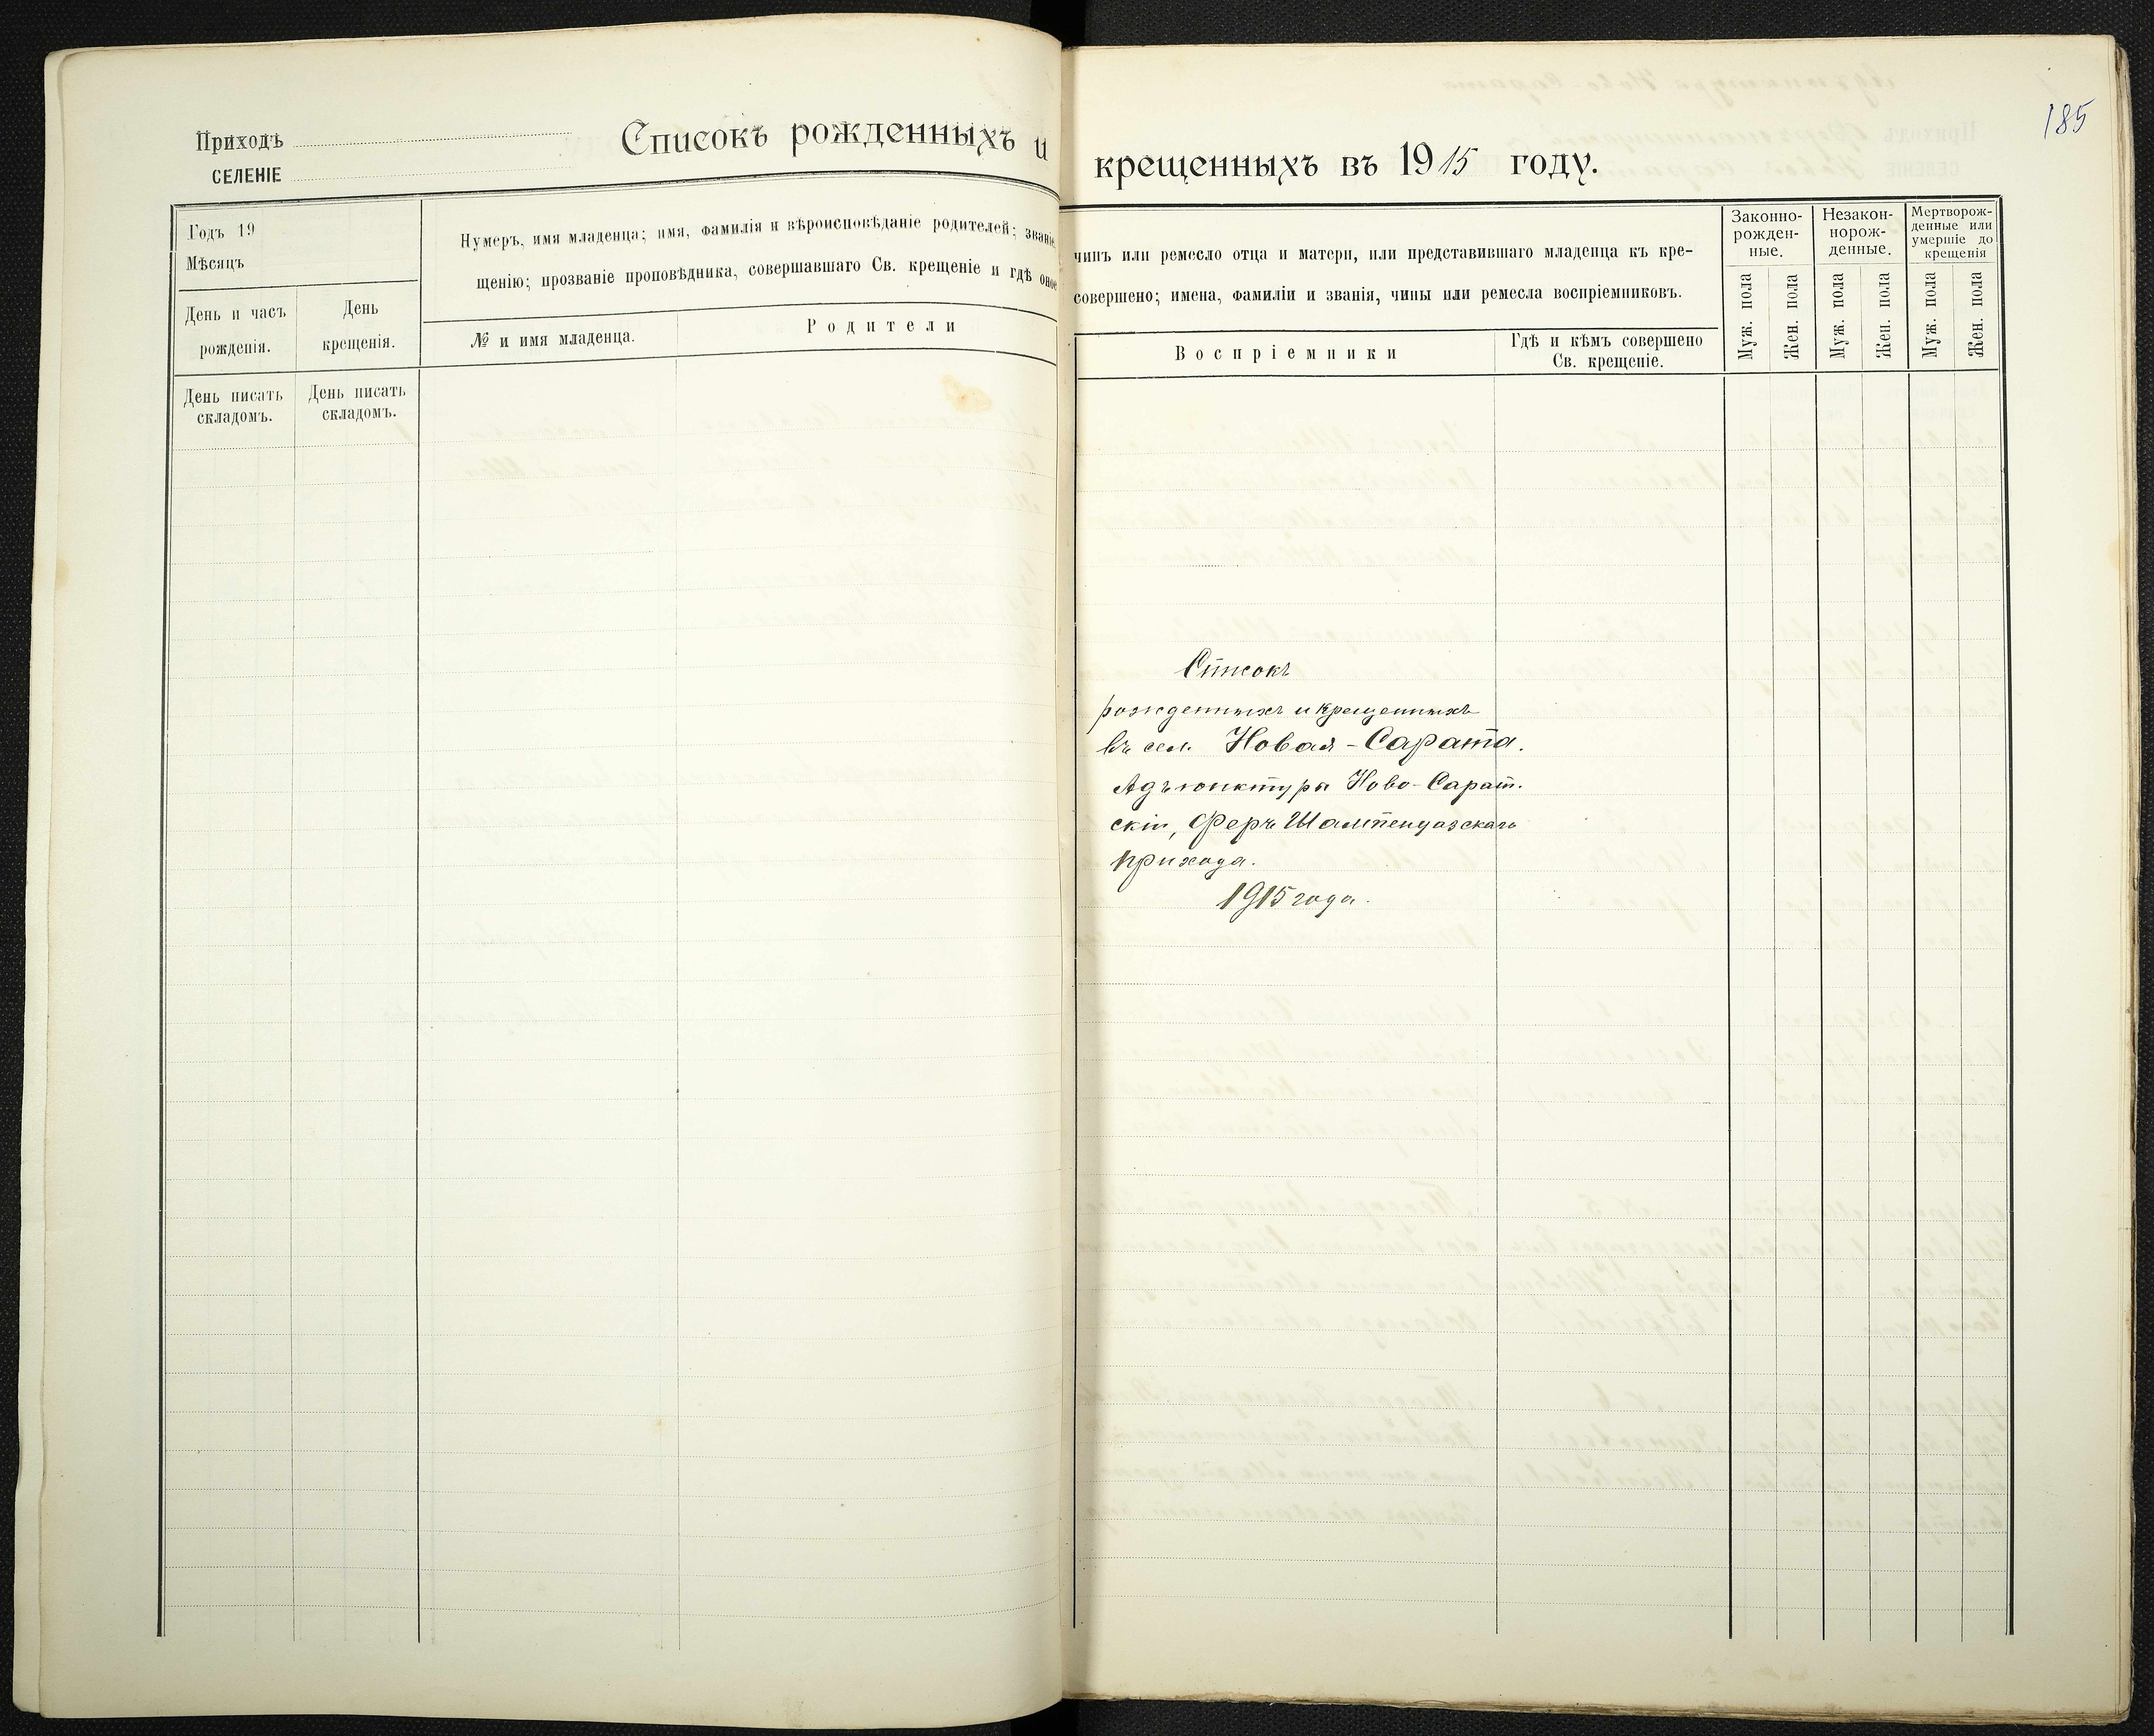 Приходъ
СЕЛЕНІЕ
Списокъ рожденныхъ и крещенныхъ въ 1915 году.
185
Годъ 19
Мѣсяцъ
День и часъ рожденія.
День крещенія.
Нумеръ, имя младенца; имя, фамилія и вѣроисповѣданіе родителей; званіе, чинъ или ремесло отца и матери, или представившаго младенца къ кре-
щенію; прозваніе проповѣдника, совершавшаго Св. крещеніе и гдѣ оное совершено; имена, фамиліи и званія, чины или ремесла воспріемниковъ.
№ и имя младенца.
Родители
Воспріемники
Гдѣ и кѣмъ совершено
Св. крещеніе.
Законно-
рожден-
ные.
Незакон-
норож-
денные.
Мертворож-
денные или
умершіе до
крещенія
Муж. пола
Жен. пола
Муж. пола
Жен. пола
Муж. пола
Жен. пола
День писать
складомъ.
День писать
складомъ.
Списокъ
рожденныхъ и крещенныхъ
въ сел. Новая-Сарата.
Адъюнктуры Ново-Сарат.
скій, Феръ Шампенуазскаго
прихода.
1915 года.